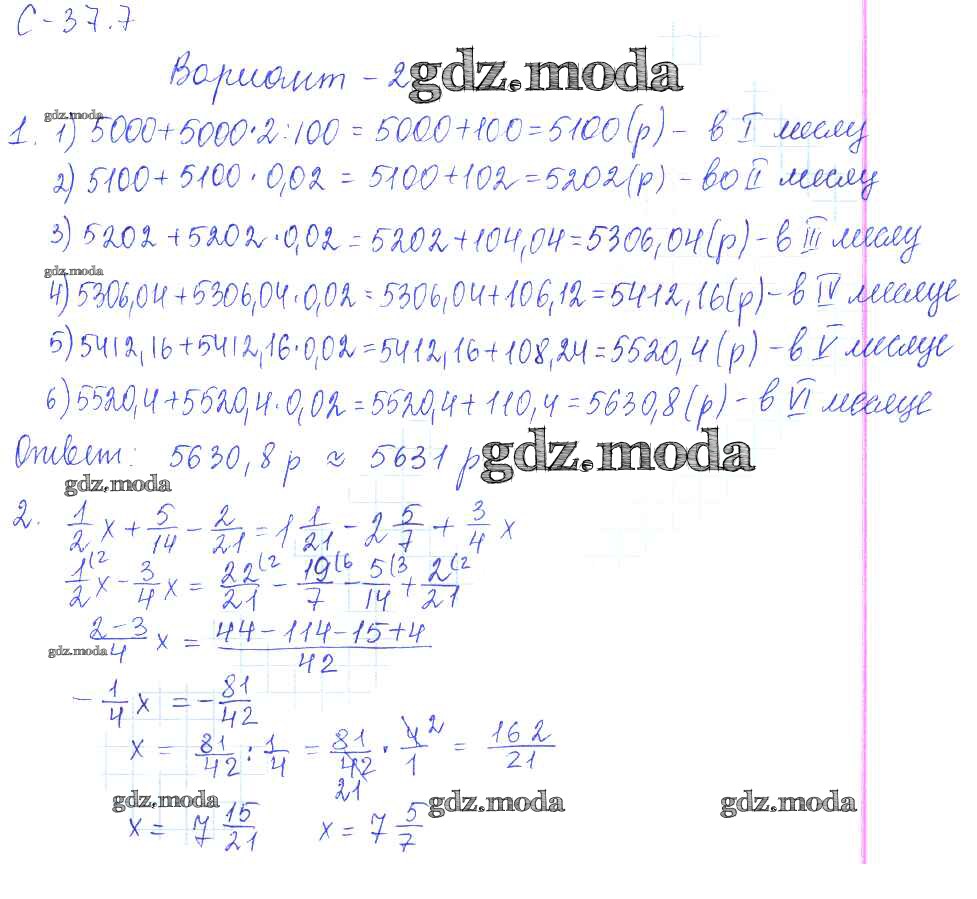 С-37.7
Вариант - 2 gdz.moda
gdz.moda
1. 1) 5000+5000·2:100 = 5000+100=5100(р) - в I месяц
2) 5100+5100·0,02 = 5100+102=5202(р) - во II месяц
3) 5202+5202·0,02=5202+104,04=5306,04(р) - в III месяц
gdz.moda
4) 5306,04+5306,04·0,02=5306,04+106,12=5412,16(р) - в IV месяце
5) 5412,16+5412,16·0,02=5412,16+108,24=5520,4(р) - в V месяце
6) 5520,4+5520,4·0,02=5520,4+110,4=5630,8(р) - в VI месяце
Ответ: 5630,8 р ≈ 5631 р gdz.moda
gdz.moda
2. 1/2 x + 5/14 - 2/21 = 1 1/21 - 2 5/7 + 3/4 x
1(2/2 x - 3/4 x = 22(2/21 - 19(6/7 - 5(3/14 + 2(2/21
2-3/4 x = 44-114-15+4/42
gdz.moda
- 1/4 x = - 81/42
x = 81/42 : 1/4 = 81/42 21 · 4 2/1 = 162/21
gdz.moda gdz.moda gdz.moda
x = 7 15/21 x = 7 5/7